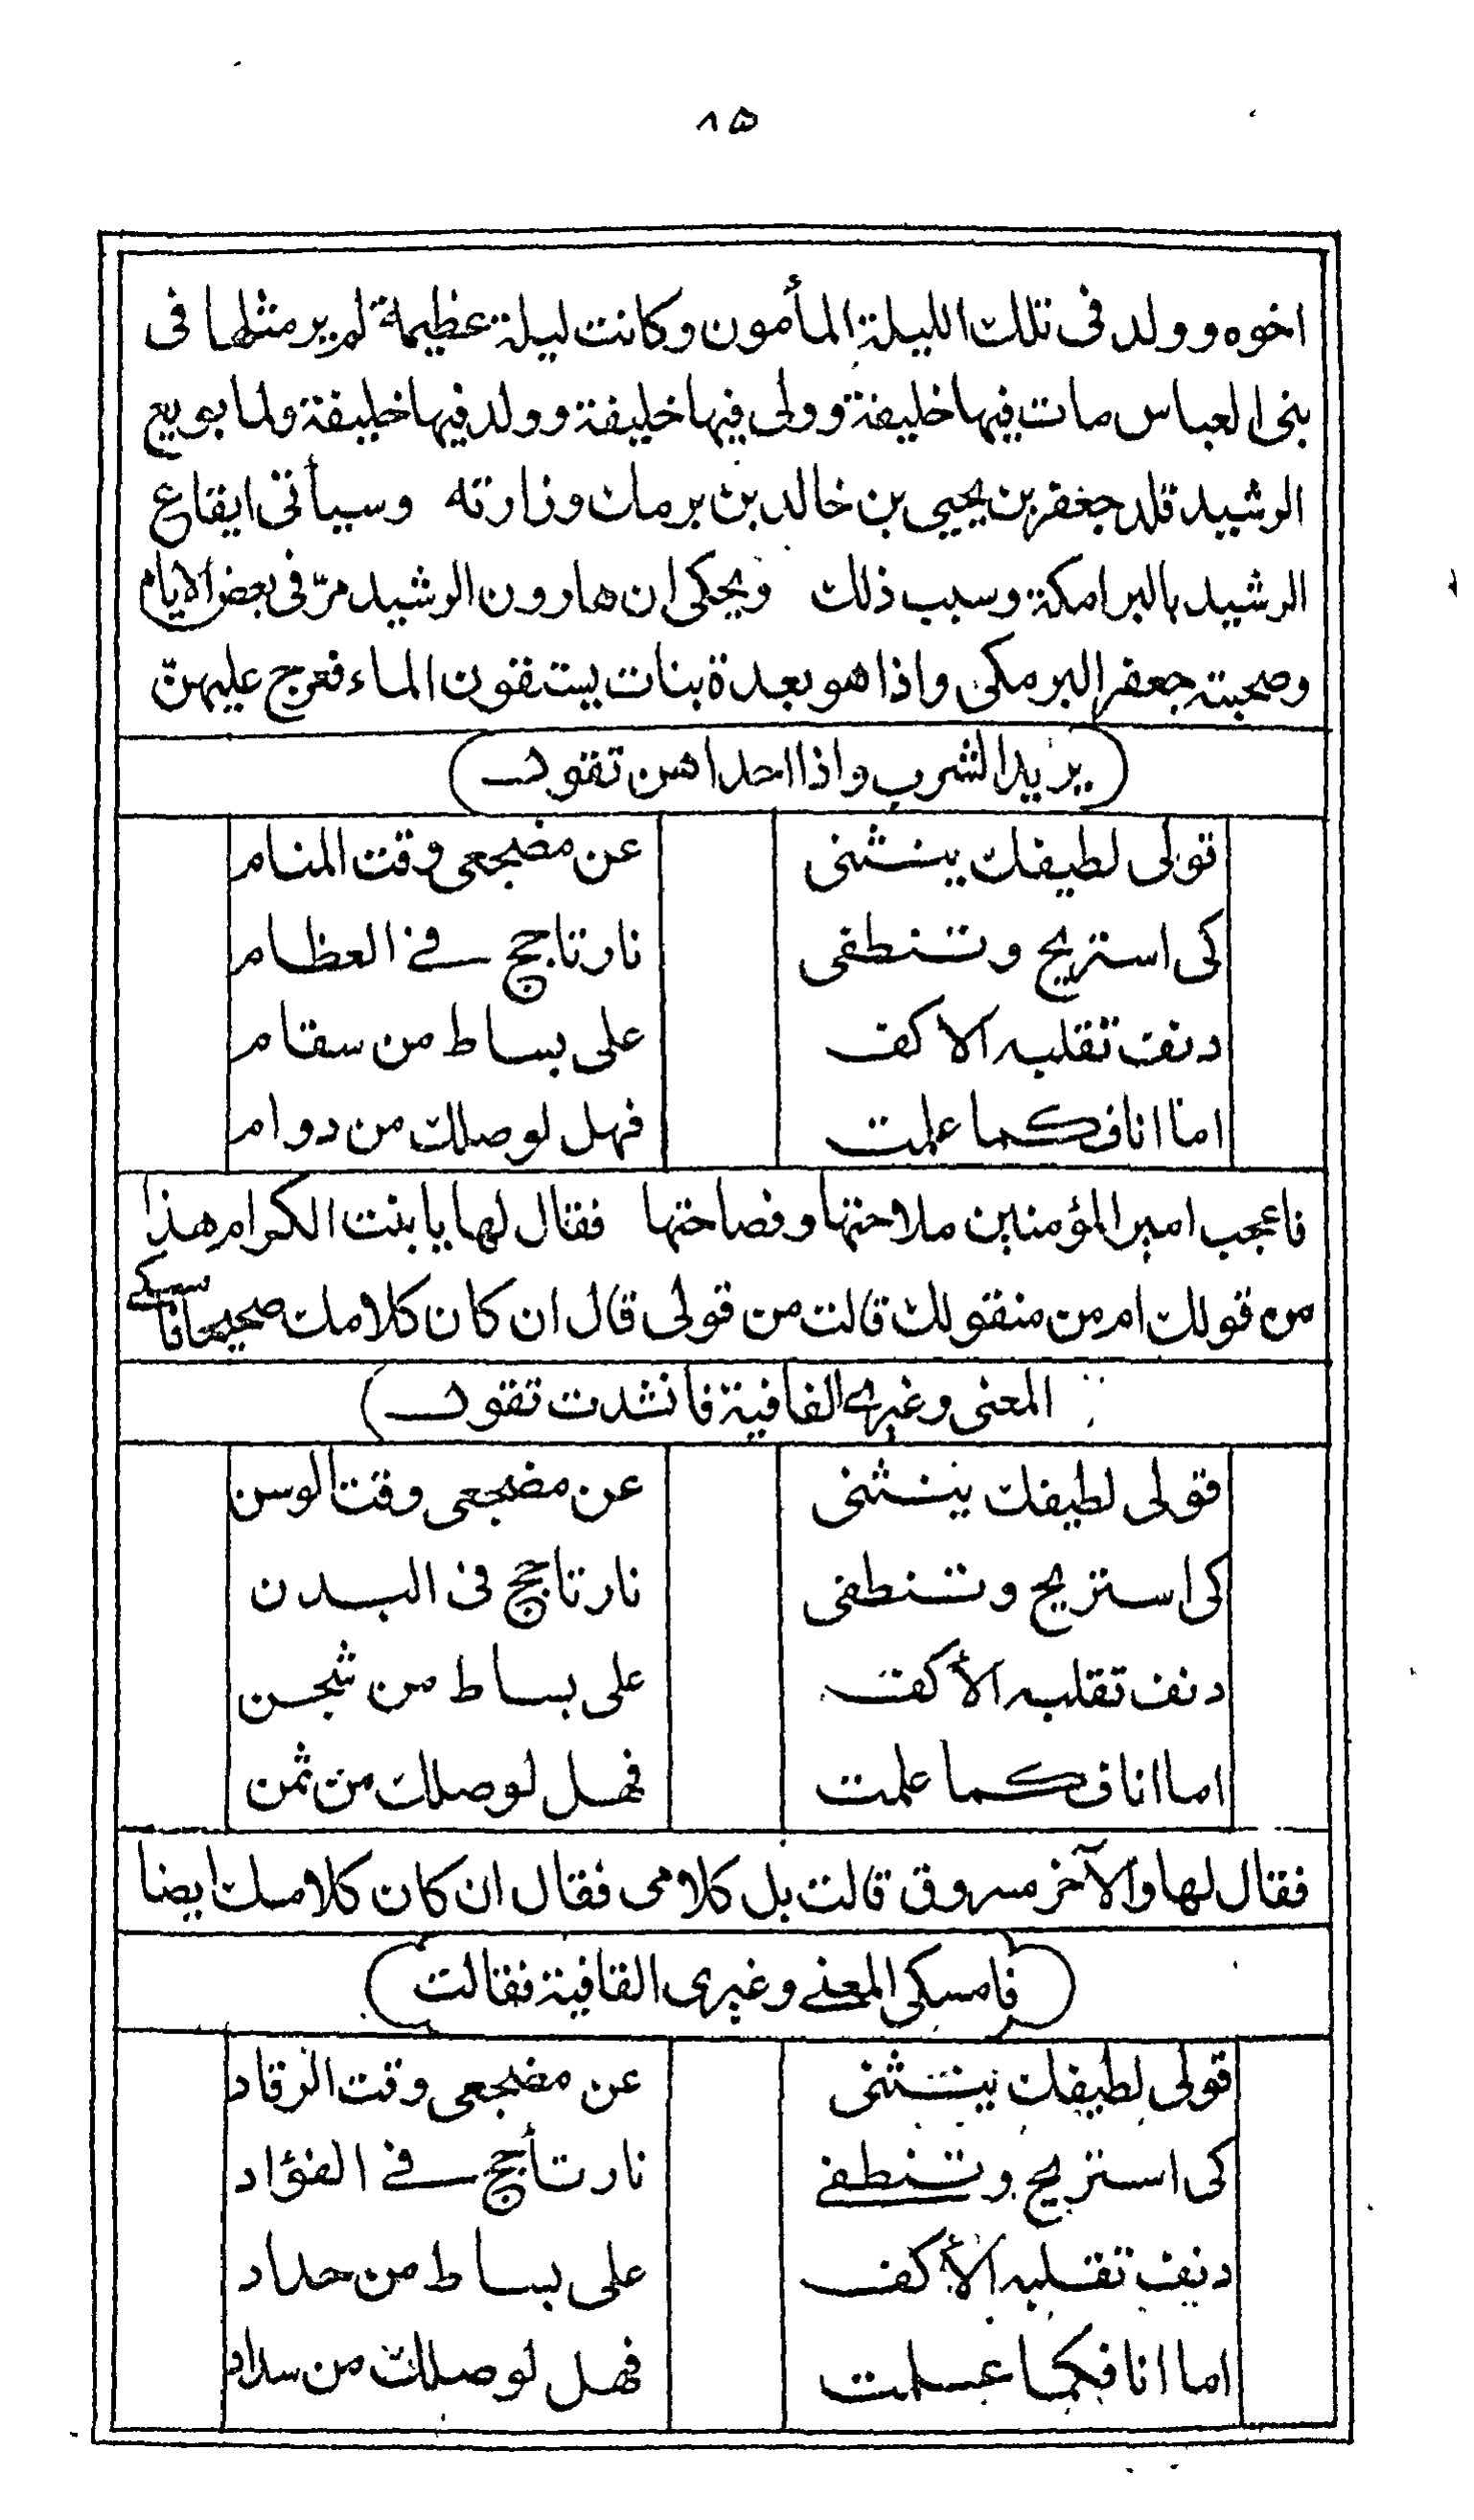 ٨٥
اخوه وولد فى تلك الليلة المأمون وكانت ليلة عظيمة لم ير مثلها فى
بنى العباس مات فيها خليفة وولى فيها خليفة وولد فيها خليفة ولما بويع
الرشيد قلد جعفر بن يحيى بن خالد بن برمك وزارته وسيأتى ايقاع
الرشيد بالبرامكة وسبب ذلك ويحكى ان هارون الرشيد مرّ فى بعض الايام
وصحبته جعفر البرمكى واذا هو بعدة بنات يستقون الماء فعرج عليهنّ
(يريد الشرب واذا احداهن تقول)
قولى لطيفك ينثنى عن مضجعى وقت المنام
كى استريح وتنطفى نار تاجج فى العظام
دنف تقلبه الاكف على بساط من سقام
اما انا فكما علمت فهل لوصلك من دوام
فاعجب امير المؤمنين ملاحتها وفصاحتها فقال لها يا بنت الكرام هذا
من قولك ام من منقولك قالت من قولى قال ان كان كلامك صحيحا فامسكى
المعنى وغيرى القافية فانشدت تقول)
قولى لطيفك ينثنى عن مضجعى وقت الوسن
كى استريح وتنطفى نار تاجج فى البدن
دنف تقلبه الأكف على بساط من شجن
اما انا فكما علمت فهل لوصلك من ثمن
فقال لها والآخر مسروق قالت بل كلامى فقال ان كان كلامك ايضا
(فامسكى المعنى وغيرى القافية فقالت)
قولى لطيفك ينثنى عن مضجعى وقت الرقاد
كى استريح وتنطفى نار تأجج فى الفؤاد
دنف تقلبه الأكف على بساط من حداد
اما انا فكما علمت فهل لوصلك من سداد